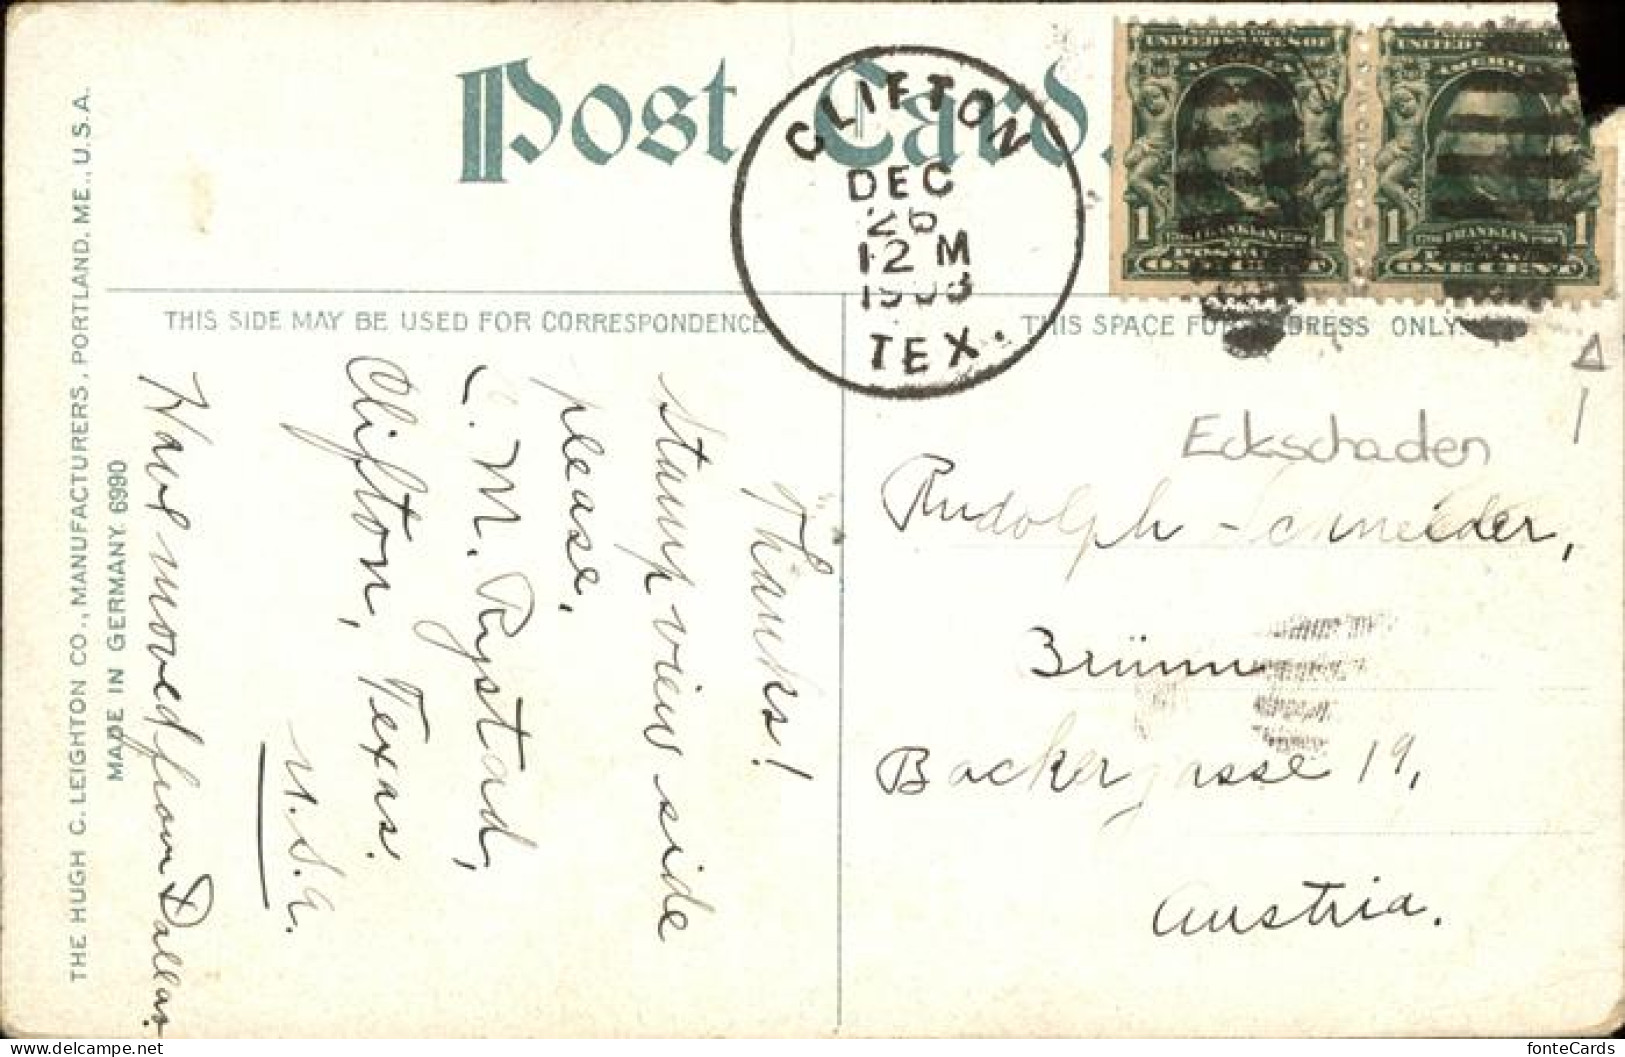 Post Card.
CLIFTON
DEC
26
12 M
1908
TEX.
SERIES OF
UNITED STATES OF
AMERICA
1 FRANKLIN 1
POSTAGE
ONE CENT
UNITED STATES OF
AMERICA
1 FRANKLIN 1
ONE CENT
THIS SIDE MAY BE USED FOR CORRESPONDENCE
THIS SPACE FOR ADDRESS ONLY.
THE HUGH C. LEIGHTON CO., MANUFACTURERS, PORTLAND, ME., U.S.A.
MADE IN GERMANY. 6990
Thanks!
Stamp view side
please.
C. M. Rystad,
Clifton, Texas.
U.S.A.
Have moved from Dallas.
Eckschaden
Rudolph Schneider,
Brünn
Backergasse 19,
Austria.
fonteCards